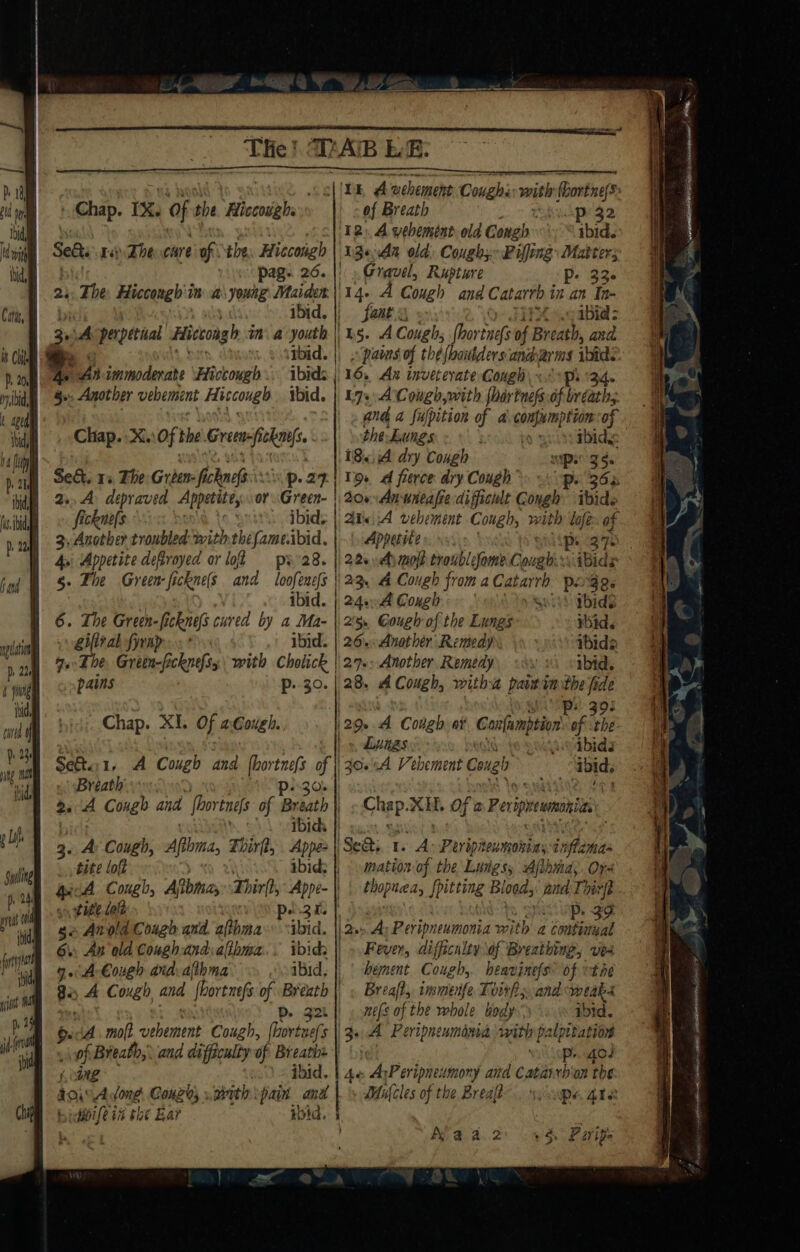 The TABLE.
Chap. IX. Of the Hiccough.
Sect. 1. The cure of the Hiccough
pag. 26.
2. The Hiccough in a young Maiden
ibid.
3. A perpetual Hiccough in a youth
ibid.
4. An immoderate Hiccough ibid.
5. Another vehement Hiccough ibid.
Chap. X. Of the Green-sickness.
Sect. 1. The Green-sickness p. 27.
2. A depraved Appetite, or Green-
sickness ibid.
3. Another troubled with the same ibid.
4. Appetite destroyed or lost p. 28.
5. The Green-sickness and looseness
ibid.
6. The Green-sickness cured by a Ma-
gistral syrup ibid.
7. The Green-sickness, with Cholick
pains p. 30.
Chap. XI. Of a Cough.
Sect. 1. A Cough and shortness of
Breath p. 30.
2. A Cough and shortness of Breath
ibid.
3. A Cough, Asthma, Thirst, Appe-
tite lost ibid.
4. A Cough, Asthma, Thirst, Appe-
tite lost p. 31.
5. An old Cough and asthma ibid.
6. An old Cough and asthma ibid.
7. A Cough and asthma ibid.
8. A Cough and shortness of Breath
p. 32.
9. A most vehement Cough, shortness
of Breath, and difficulty of Breath-
ing ibid.
10. A long Cough, with pain and
noise in the Ear ibid.
11. A vehement Cough with shortness
of Breath p. 32
12. A vehement old Cough ibid.
13. An old Cough, Pissing Matter,
Gravel, Rupture p. 33.
14. A Cough and Catarrh in an In-
fant ibid.
15. A Cough, shortness of Breath, and
pains of the shoulders and arms ibid.
16. An inveterate Cough p. 34.
17. A Cough, with shortness of breath,
and a suspition of a consumption of
the Lungs ibid.
18. A dry Cough p. 35.
19. A fierce dry Cough p. 36.
20. An uneasie difficult Cough ibid.
21. A vehement Cough, with loss of
Appetite p. 37
22. A most troublesome Cough ibid.
23. A Cough from a Catarrh p. 38.
24. A Cough ibid.
25. Cough of the Lungs ibid.
26. Another Remedy ibid.
27. Another Remedy ibid.
28. A Cough, with a pain in the side
p. 39.
29. A Cough or Consumption of the
Lungs ibid.
30. A Vehement Cough ibid.
Chap. XII. Of a Peripneumonia.
Sect. 1. A Peripneumonia, inflama-
mation of the Lungs, Asthma, Or-
thopnæa, spitting Blood, and Thirst
p. 39
2. A Peripneumonia with a continual
Fever, difficulty of Breathing, ve-
hement Cough, heaviness of the
Breast, immense Thirst, and weak-
ness of the whole body ibid.
3. A Peripneumonia with palpitation
p. 40.
4. A Peripneumony and Catarrh on the
Muscles of the Breast p. 41.
Aaa 2 5. Perip-